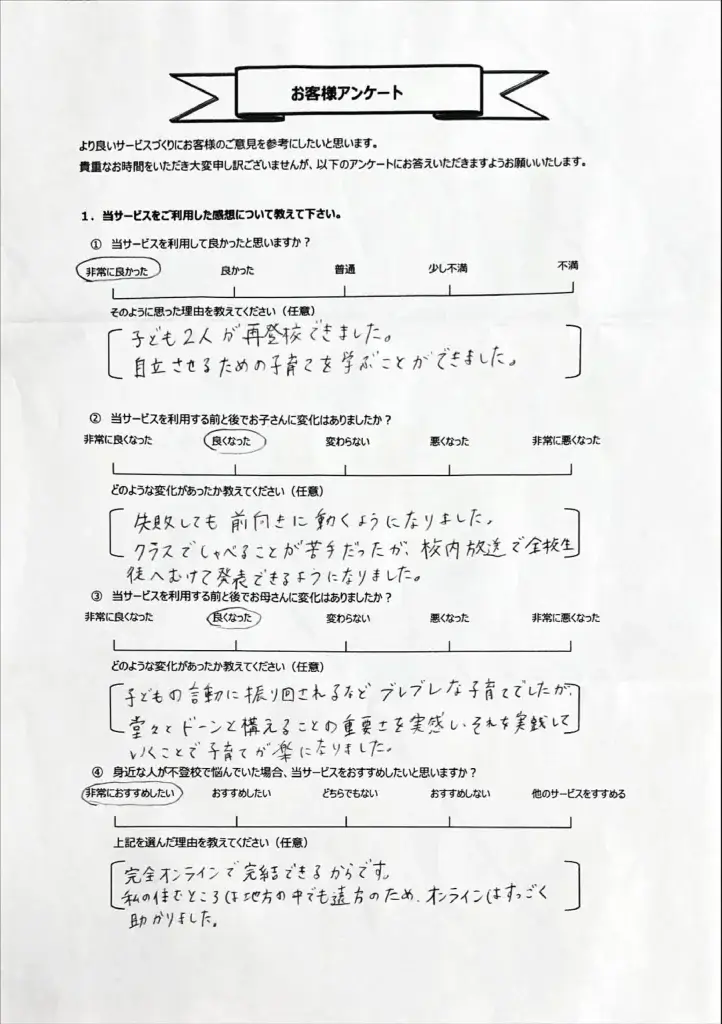 お客様アンケート
より良いサービスづくりにお客様のご意見を参考にしたいと思います。
貴重なお時間をいただき大変申し訳ございませんが、以下のアンケートにお答えいただきますようお願いいたします。
1．当サービスをご利用した感想について教えて下さい。
① 当サービスを利用して良かったと思いますか？
非常に良かった 良かった 普通 少し不満 不満
そのように思った理由を教えてください（任意）
子ども2人が再登校できました。
自立させるための子育てを学ぶことができました。
② 当サービスを利用する前と後でお子さんに変化はありましたか？
非常に良くなった 良くなった 変わらない 悪くなった 非常に悪くなった
どのような変化があったか教えてください（任意）
失敗しても前向きに動くようになりました。
クラスでしゃべることが苦手だったが、校内放送で全校生
徒へむけて発表できるようになりました。
③ 当サービスを利用する前と後でお母さんに変化はありましたか？
非常に良くなった 良くなった 変わらない 悪くなった 非常に悪くなった
どのような変化があったか教えてください（任意）
子どもの言動に振り回されるなど ブレブレな子育てでしたが、
堂々とドーンと構えることの重要さを実感し、それを実践して
いくことで子育てが楽になりました。
④ 身近な人が不登校で悩んでいた場合、当サービスをおすすめしたいと思いますか？
非常におすすめしたい おすすめしたい どちらでもない おすすめしない 他のサービスをすすめる
上記を選んだ理由を教えてください（任意）
完全オンラインで完結できるからです。
私の住むところは地方の中でも遠方のため、オンラインはすっごく
助かりました。